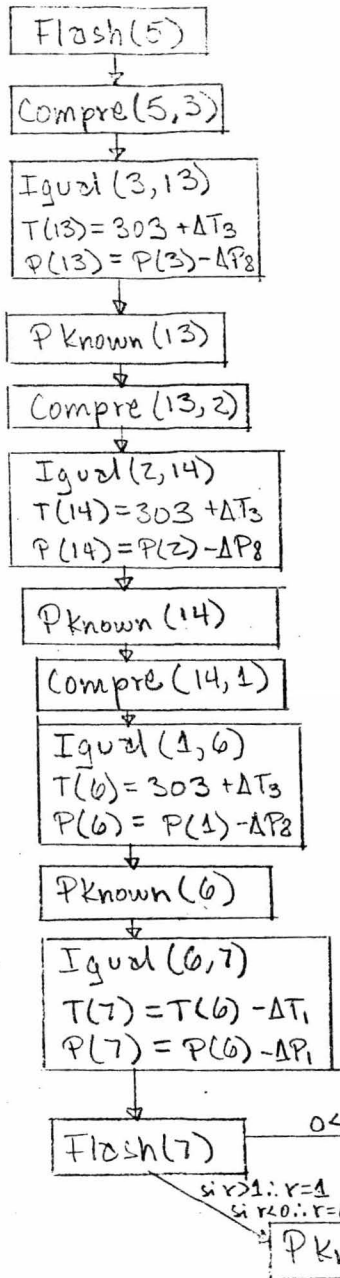 Flash(5)
Compre(5,3)
Igual(3,13)
T(13)=303+ΔT₃
P(13)=P(3)-ΔP₈
PKnown(13)
Compre(13,2)
Igual(2,14)
T(14)=303+ΔT₃
P(14)=P(2)-ΔP₈
PKnown(14)
Compre(14,1)
Igual(1,6)
T(6)=303+ΔT₃
P(6)=P(1)-ΔP₈
PKnown(6)
Igual(6,7)
T(7)=T(6)-ΔT₁
P(7)=P(6)-ΔP₁
0<
Flash(7)
si r>1∴r=1
si r<0∴r=